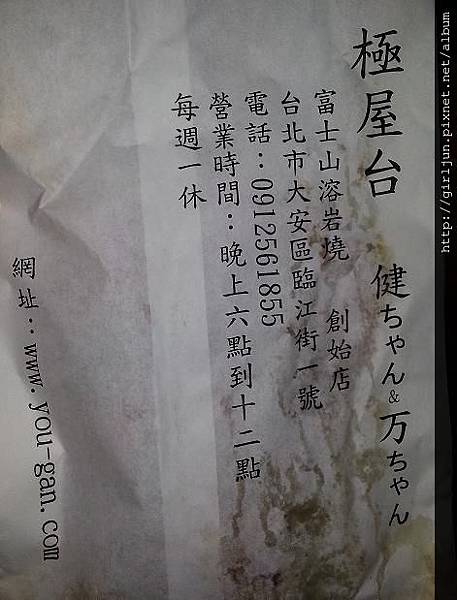 極屋台 健ちゃん&万ちゃん
富士山溶岩燒 創始店
台北市大安區臨江街一號
電話：0912561855
營業時間：晚上六點到十二點
每週一休
網址：www.you-gan.com
http://girljun.pixnet.net/album